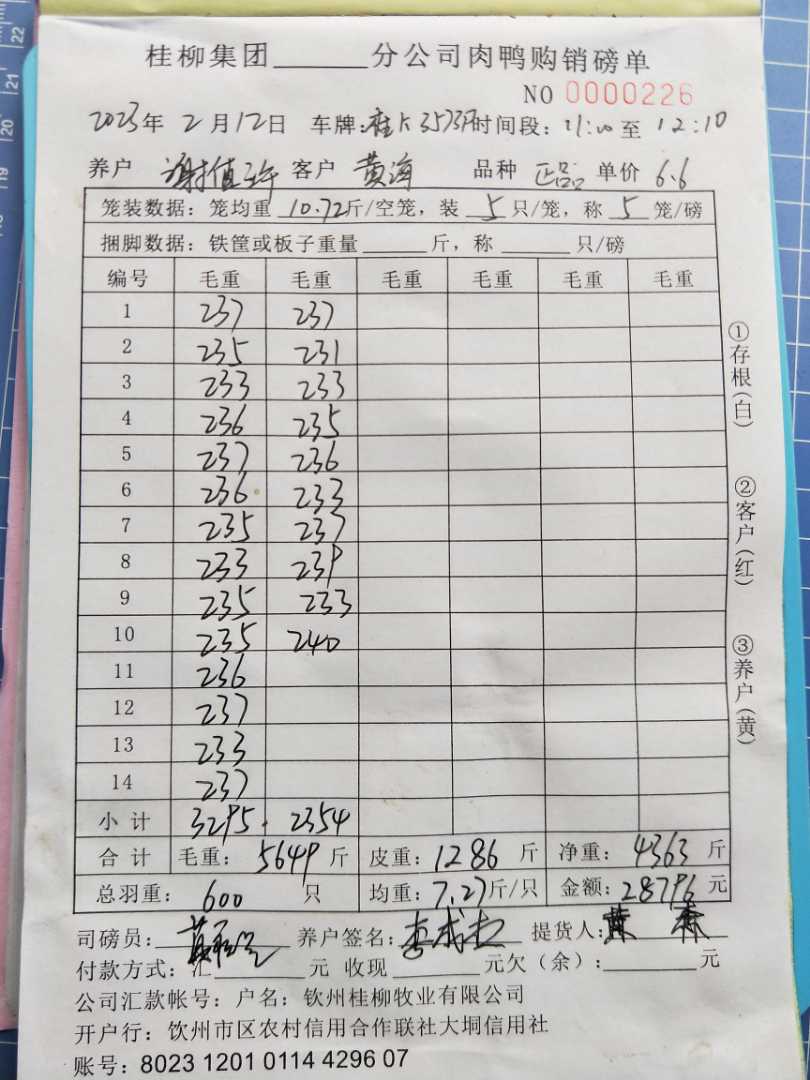 桂柳集团______分公司肉鸭购销磅单
NO 0000226
2023年 2月12日 车牌: 3573 时间段: 11:00 至 12:10
养户 谢植 客户 黄海 品种 正品 单价 6.6
笼装数据: 笼均重 10.72斤/空笼, 装 5 只/笼, 称 5 笼/磅
捆脚数据: 铁筐或板子重量______斤, 称______只/磅
编号 毛重 毛重 毛重 毛重 毛重 毛重
1 237 237
2 235 231
3 233 233
4 236 235
5 237 236
6 236 233
7 235 237
8 233 239
9 235 233
10 235 240
11 236
12 237
13 233
14 237
小计 3295. 2354
合计 毛重: 5649 斤 皮重: 1286 斤 净重: 4363 斤
总羽重: 600 只 均重: 7.27斤/只 金额: 28796 元
司磅员: 养户签名: 李成 提货人: 黄
付款方式: 汇______元 收现______元欠(余):______元
公司汇款帐号: 户名: 钦州桂柳牧业有限公司
开户行: 饮州市区农村信用合作联社大垌信用社
账号: 8023 1201 0114 4296 07
①存根(白)
②客户(红)
③养户(黄)
22
21
20
19